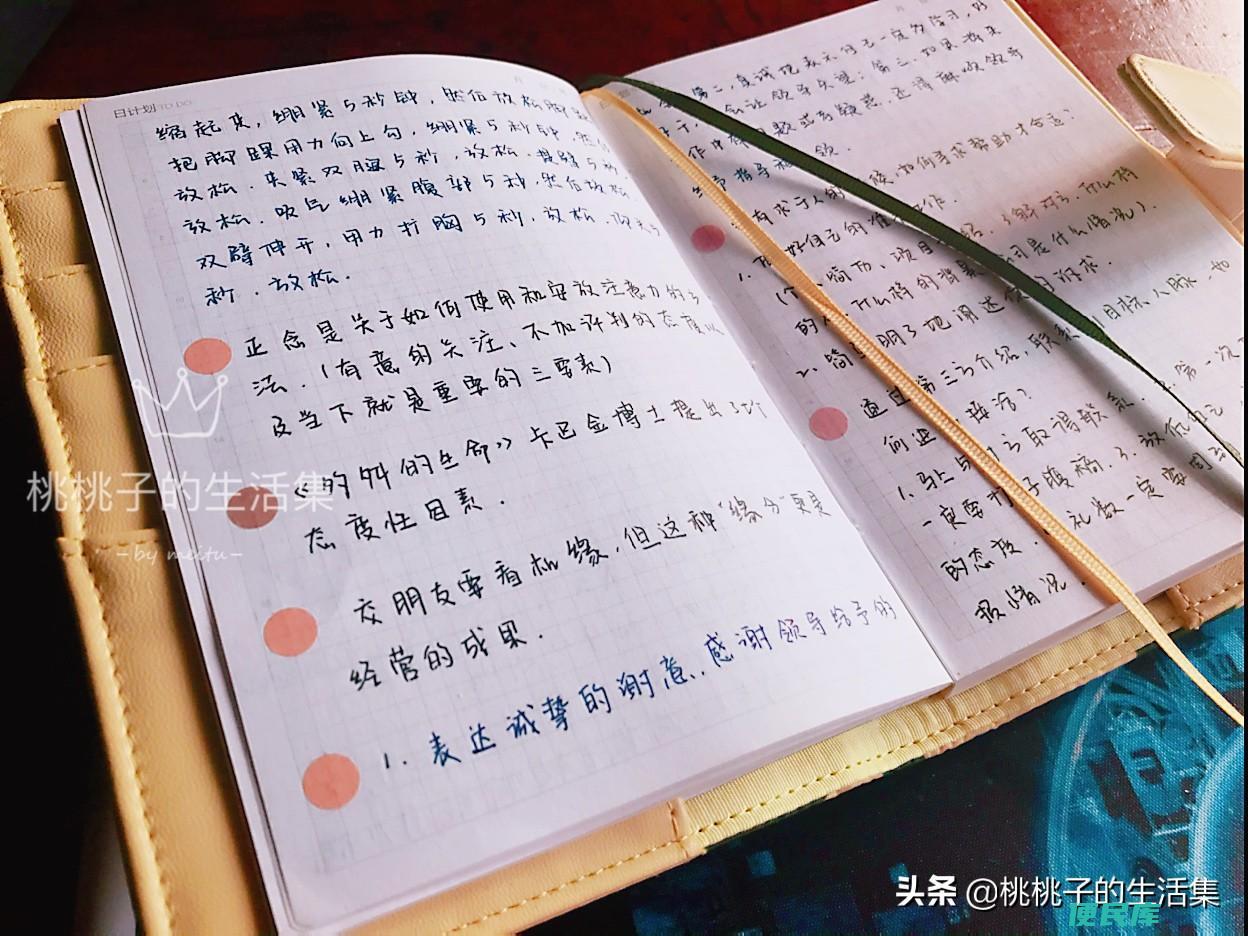 日计划 TO DO
缩起来，绷紧5秒钟，然后放松脚
把脚踝用力向上勾，绷紧5秒钟，然
放松．夹紧双腿5秒，放松．提臀5秒
放松．吸气绷紧腹部5秒，然后放松
双臂伸开，用力扩胸5秒，放松．
秒．放松．
正念是关于如何使用和安放注意力的方
法．(有意的关注、不加评判的态度以
及当下就是重要的三要素)
的生命》卡巴金博士提出了7个
态度性因素．
交朋友要看机缘，但这种"缘分"更是
经营的成果．
1. 表达诚挚的谢意．感谢领导给予的
第二，真诚地表示自己一定努力学习，
会让领导失望；第三，如果将来
作中
还得麻烦领导
指导
有求于人的时候，如何寻求帮助才合适？
1.
好自己的准备工作．
简历、项目
了解对方，什么样
的人，什么样的背景
是什么情况)．
2. 简单明了地阐述你的诉求．
通过第三方介绍，联系
目标人脉，如
何
接洽？
1. 马上与对方取得联系．
第一次
一定要打好腹稿．3. 放低自己
的态度．
礼数一定要周到
报情况．
桃桃子的生活集
-by meitu-
头条 @桃桃子的生活集
便民库